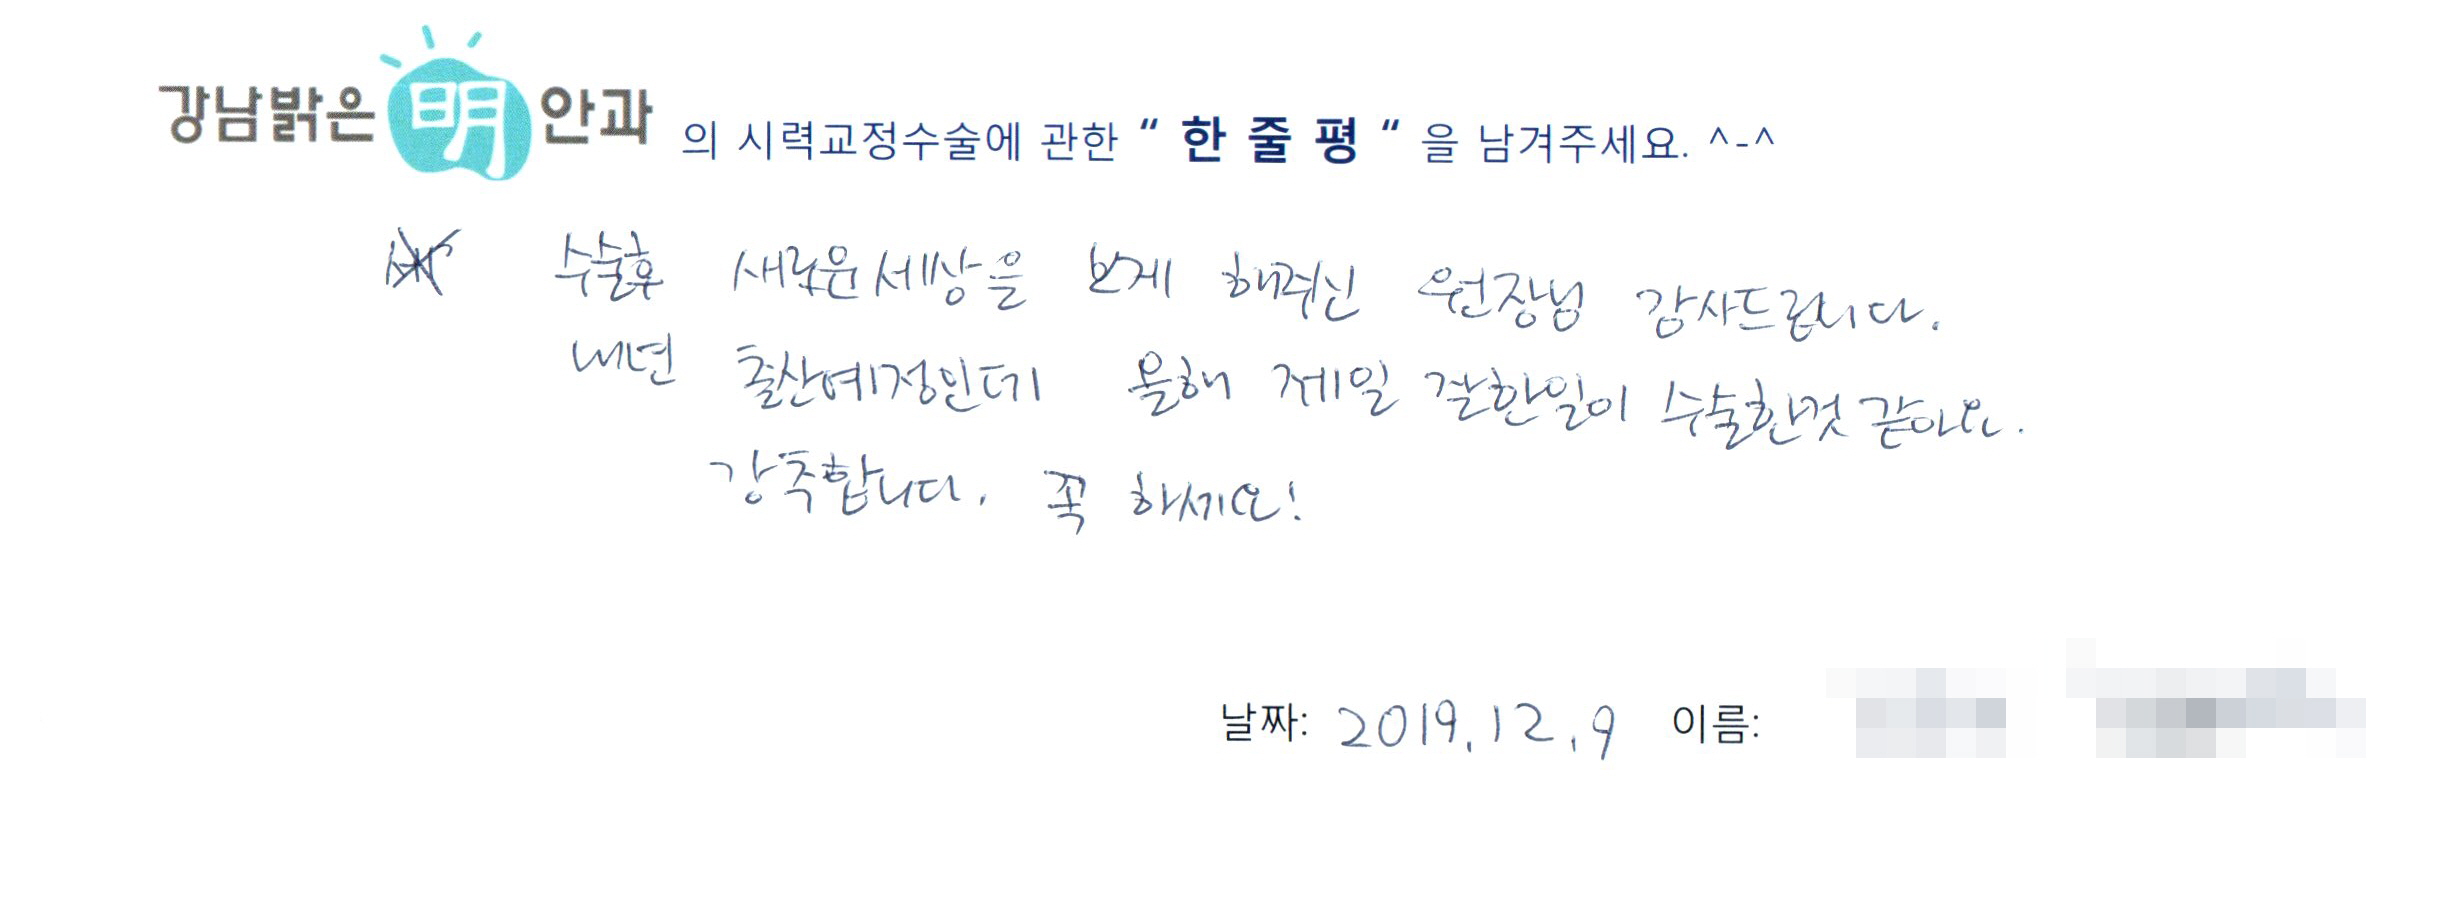 강남밝은 明 안과 의 시력교정수술에 관한 “ 한 줄 평 “ 을 남겨주세요. ^-^
수술후 새로운세상을 보게 해주신 원장님 감사드립니다.
내년 출산예정인데 올해 제일 잘한일이 수술한것 같아요.
강추합니다. 꼭 하세요!
날짜: 2019.12.9 이름: